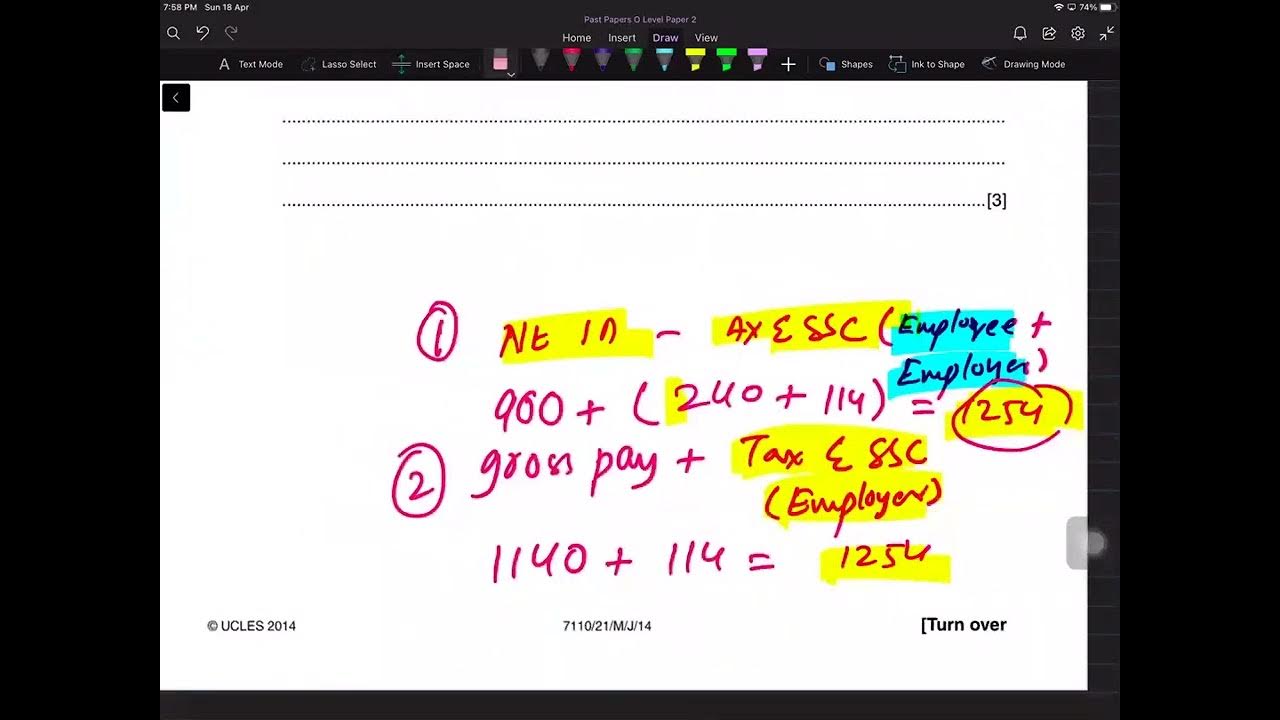 7:58 PM Sun 18 Apr
74%
Past Papers O Level Paper 2
Home Insert Draw View
Text Mode Lasso Select Insert Space Shapes Ink to Shape Drawing Mode
................................................................
................................................................
................................................................[3]
① - & SSC (Employee +
Employer)
900 + (240 + 114) = 1254
② gross pay + Tax & SSC
(Employer)
1140 + 114 = 1254
© UCLES 2014 7110/21/M/J/14 [Turn over